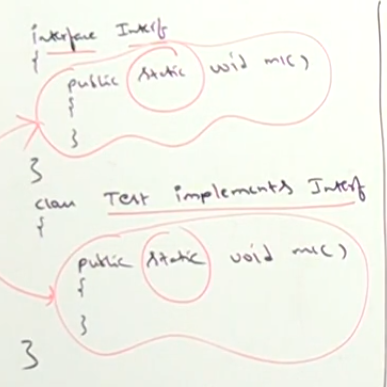 interface Interf
{
public static void m1()
{
}
}
class Test implements Interf
{
public static void m1()
{
}
}